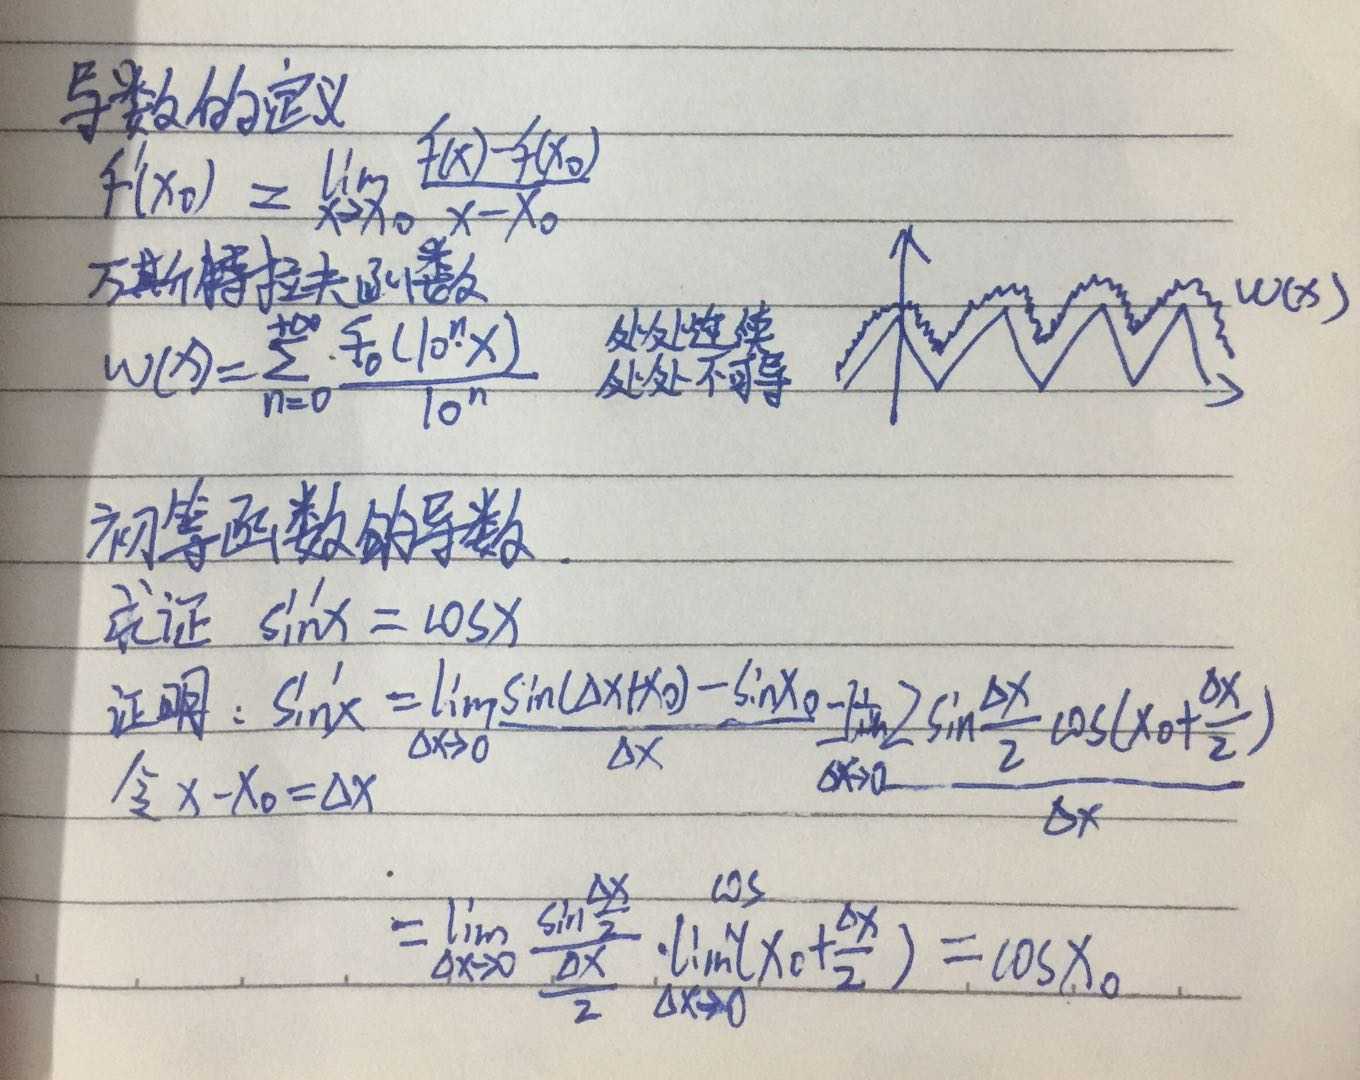 导数的定义
f'(x₀) = lim x→x₀ (f(x)-f(x₀))/(x-x₀)
万斯特拉夫函数
W(x) = ∑ n=0 +∞ f₀(10ⁿx)/10ⁿ
处处连续
处处不可导
W(x)
初等函数的导数
求证 sin'x = cosx
证明: sin'x = lim Δx→0 (sin(Δx+x₀)-sinx₀)/Δx = lim Δx→0 (2 sin Δx/2 cos(x₀+Δx/2))/Δx
令 x-x₀=Δx
= lim Δx→0 (sin Δx/2)/(Δx/2) · lim Δx→0 cos(x₀+Δx/2) = cosx₀